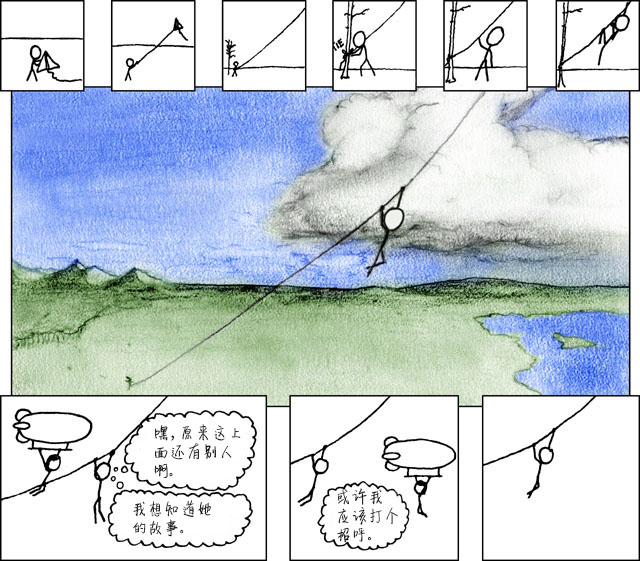 嘿,原来这上
面还有别人
啊。
我想知道她
的故事。
或许我
应该打个
招呼。